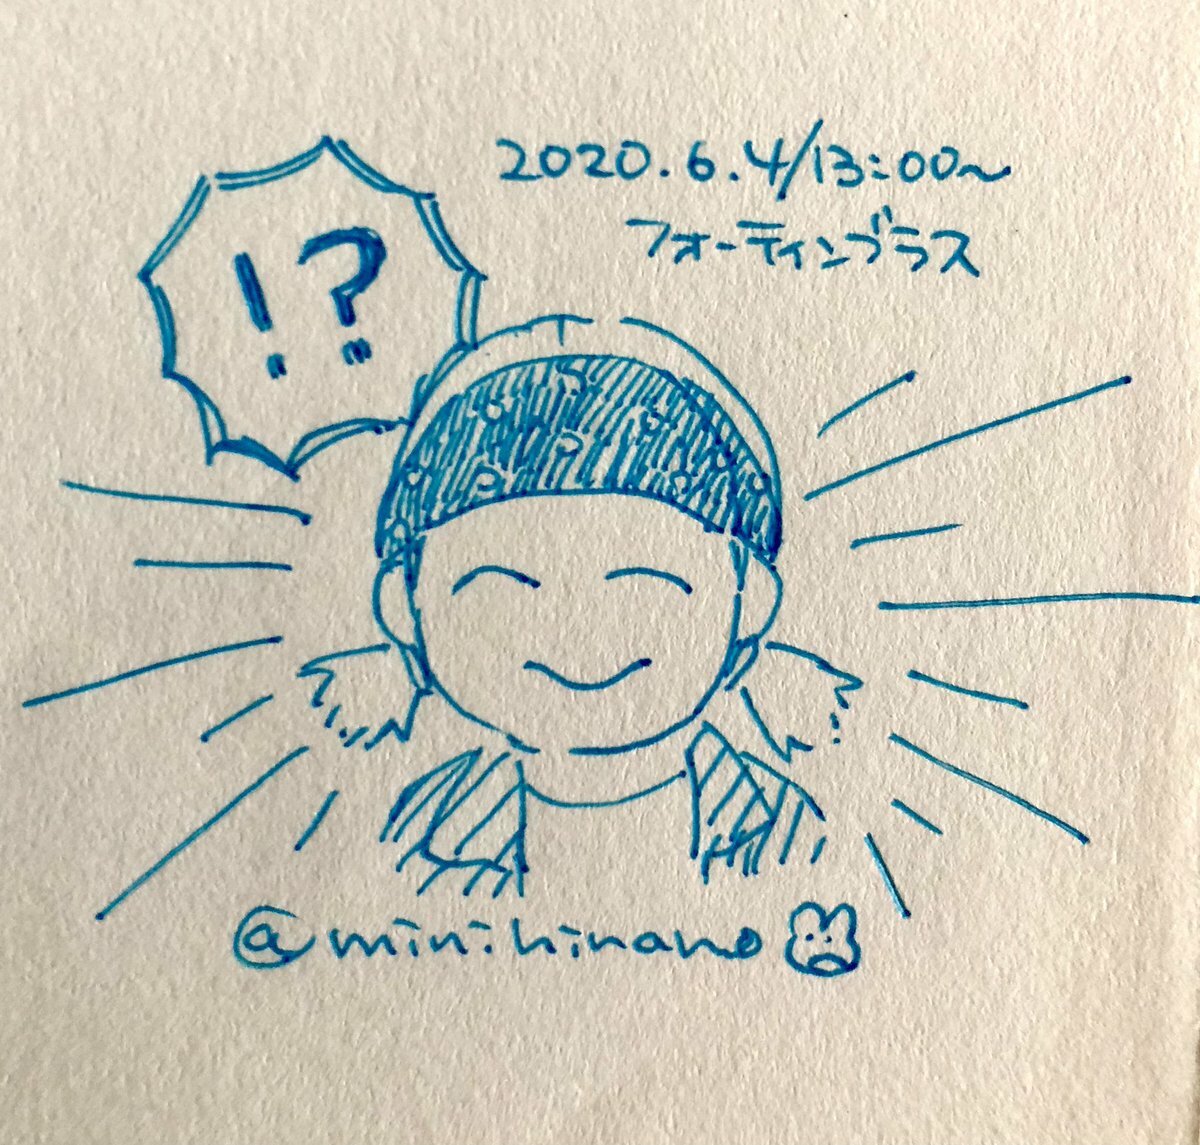 !?
2020.6.4/13:00〜
フォーティンブラス
@minihinano